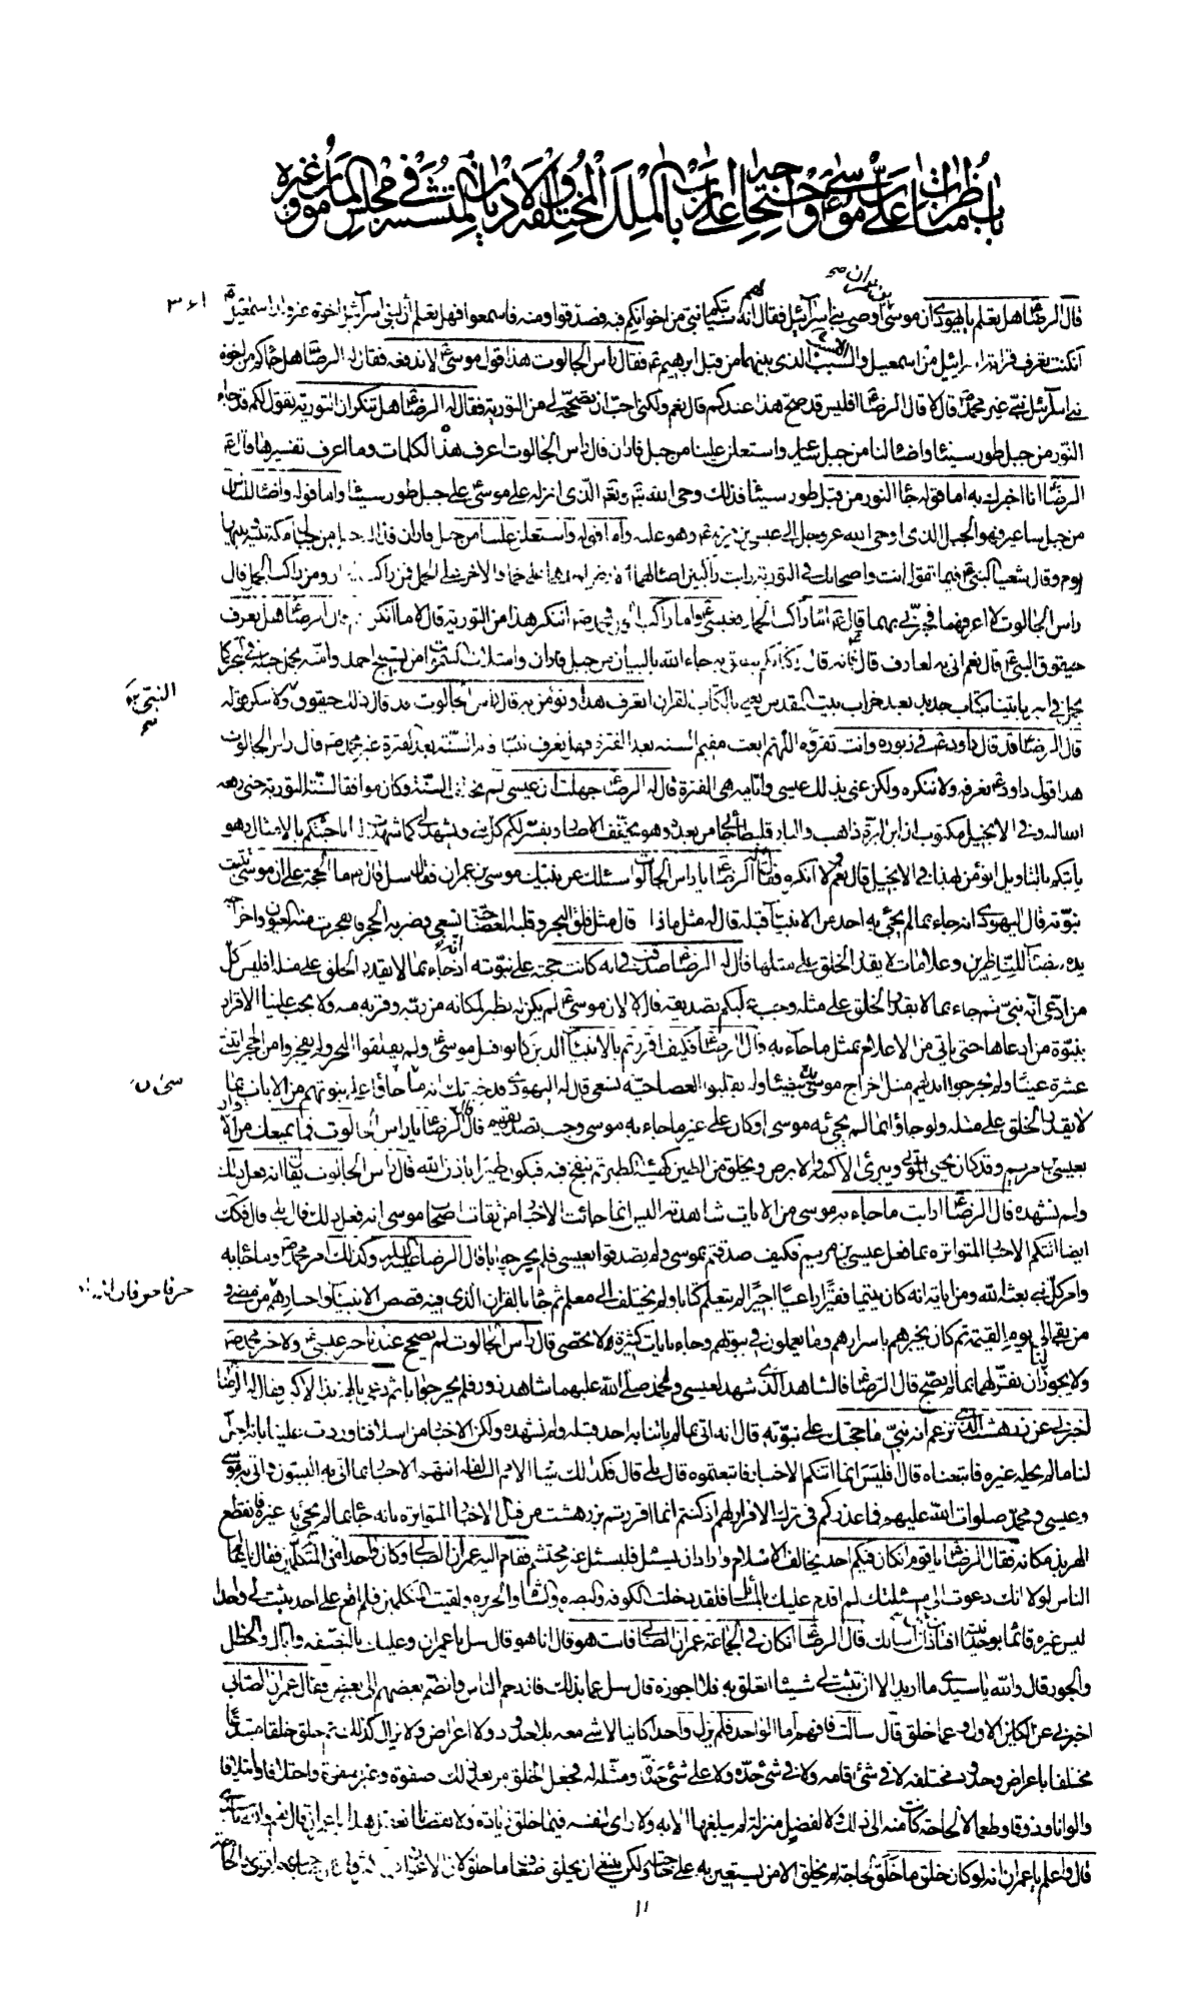 باب مناظرات علي بن موسى واحتجاجه على ارباب الملل المختلفة والاديان المتشتتة في مجلس المامون وغيره
٣٤١
قال الرضا هل تعلم يا يهودي ان موسى اوصى بني اسرائيل فقال لهم انه سياتيكم نبي من اخوانكم فبه فصدقوا ومنه فاسمعوا فهل تعلم ان لبني اسرائيل اخوة غير ولد اسمعيل
ان كنت تعرف قرابة اسرائيل من اسمعيل والسبب الذي بينهما من قبل ابرهيم ع فقال راس الجالوت هذا قول موسى لا ندفعه فقال له الرضا هل جاءكم من اخوة
بني اسرائيل نبي غير محمد قال لا قال الرضا افليس قد صح هذا عندكم قال نعم ولكني احب ان تصححه لي من التورية فقال له الرضا هل تنكر ان التورية تقول لكم قد جاء
النور من جبل طور سيناء واضاء لنا من جبل ساعير واستعلن علينا من جبل فاران قال راس الجالوت اعرف هذه الكلمات وما اعرف تفسيرها قال
الرضا انا اخبرك به اما قوله جاء النور من قبل طور سيناء فذلك وحي الله تبارك وتعالى الذي انزله على موسى على جبل طور سيناء واما قوله واضاء للناس
من جبل ساعير فهو الجبل الذي اوحى الله عز وجل الى عيسى بن مريم ع وهو عليه واما قوله واستعلن علينا من جبل فاران فذلك جبل من جبال مكة بينه وبينها
يوم وقال شعيا النبي فيما تقول انت واصحابك في التورية رايت راكبين اضاء لهما الارض احدهما على حمار والاخر على الجمل فمن راكب الحمار ومن راكب الجمل قال
راس الجالوت لا اعرفهما فخبرني بهما قال اما راكب الحمار فعيسى واما راكب الجمل فمحمد اتنكر هذا من التورية قال لا ما انكره قال الرضا هل تعرف
حيقوق النبي قال نعم اني به لعارف قال فانه قال وكتابكم ينطق به جاء الله بالبيان من جبل فاران وامتلات السموات من تسبيح احمد وامته يحمل خيله في البحر كما
يحمل في البر ياتينا بكتاب جديد بعد خراب بيت المقدس يعني بالكتاب القران اتعرف هذا وتؤمن به قال راس الجالوت قد قال ذلك حيقوق ولا ننكر قوله
قال الرضا فقد قال داود في زبوره وانت تقرؤه اللهم ابعث مقيم السنة بعد الفترة فهل تعرف نبيا اقام السنة بعد الفترة غير محمد قال راس الجالوت
هذا قول داود نعرفه ولا ننكره ولكن عنى بذلك عيسى وايامه هي الفترة قال له الرضا جهلت ان عيسى لم يخالف السنة وكان موافقا لسنة التورية حتى رفعه
الله اليه وفي الانجيل مكتوب ان ابن البرة ذاهب والبارقليطا جاء من بعده وهو يخفف الاصار ويفسر لكم كل شيء ويشهد لي كما شهدت له انا جئتكم بالامثال وهو
ياتيكم بالتاويل اتؤمن بهذا في الانجيل قال نعم لا انكره فقال له الرضا يا راس الجالوت اسئلك عن نبيك موسى بن عمران فقال سل قال ما الحجة على ان موسى ثبتت
نبوته قال اليهودي انه جاء بما لم يجئ به احد من الانبياء قبله قال له مثل ماذا قال مثل فلق البحر وقلبه العصا حية تسعى وضربه الحجر فانفجرت منه العيون واخراجه
يده بيضاء للناظرين وعلامات لا يقدر الخلق على مثلها قال له الرضا صدقت في انه كانت حجته على نبوته انه جاء بما لا يقدر الخلق على مثله افليس كل
من ادعى انه نبي ثم جاء بما لا يقدر الخلق على مثله وجب عليكم تصديقه قال لا لان موسى لم يكن له نظير لمكانه من ربه وقربه منه ولا يجب علينا الاقرار
بنبوة من ادعاها حتى ياتي من الاعلام بمثل ما جاء به قال الرضا فكيف اقررتم بالانبياء الذين كانوا قبل موسى ولم يفلقوا البحر ولم يفجروا من الحجر اثنتي
عشرة عينا ولم يخرجوا ايديهم مثل اخراج موسى يده بيضاء ولم يقلبوا العصا حية تسعى قال له اليهودي قد خبرتك انه متى جاؤا على نبوتهم من الايات بما
لا يقدر الخلق على مثله ولو جاؤا بما لم يجئ به موسى او كان على غير ما جاء به موسى وجب تصديقهم قال الرضا يا راس الجالوت فما يمنعك من الاقرار
بعيسى بن مريم وقد كان يحيي الموتى ويبرئ الاكمه والابرص ويخلق من الطين كهيئة الطير ثم ينفخ فيه فيكون طيرا باذن الله قال راس الجالوت يقال انه فعل ذلك
ولم نشهده قال الرضا ارايت ما جاء به موسى من الايات شاهدته اليس انما جاءت الاخبار من ثقات اصحاب موسى انه فعل ذلك قال بلى قال فكذلك
ايضا اتتكم الاخبار المتواترة بما فعل عيسى بن مريم فكيف صدقتم بموسى ولم تصدقوا بعيسى فلم يحر جوابا قال الرضا وكذلك امر محمد وما جاء به
وامر كل نبي بعثه الله ومن اياته انه كان يتيما فقيرا راعيا اجيرا لم يتعلم كتابا ولم يختلف الى معلم ثم جاء بالقران الذي فيه قصص الانبياء واخبارهم من مضى و
من بقي الى يوم القيمة ثم كان يخبرهم باسرارهم وما يعملون في بيوتهم وجاء بايات كثيرة لا تحصى قال راس الجالوت لم يصح عندنا خبر عيسى ولا خبر محمد
ولا يجوز لنا ان نقر لهما بما لم يصح قال الرضا فالشاهد الذي شهد لعيسى ولمحمد صلى الله عليهما شاهد زور فلم يحر جوابا ثم دعى بالهربذ الاكبر فقال له الرضا
اخبرني عن زردهشت الذي تزعم انه نبي ما حجتك على نبوته قال انه اتى بما لم ياتنا به احد قبله ولم نشهده ولكن الاخبار من اسلافنا وردت علينا بانه احل
لنا ما لم يحله غيره فاتبعناه قال افليس انما اتتكم الاخبار فاتبعتموه قال بلى قال فكذلك سائر الامم السالفة اتتهم الاخبار بما اتى به النبيون واتى به موسى
وعيسى ومحمد صلوات الله عليهم فما عذركم في ترك الاقرار لهم اذ كنتم انما اقررتم بزردهشت من قبل الاخبار المتواترة بانه جاء بما لم يجئ به غيره فانقطع
الهربذ مكانه فقال الرضا يا قوم ان كان فيكم احد يخالف الاسلام واراد ان يسئل فليسئل غير محتشم فقام اليه عمران الصابي وكان واحدا من المتكلمين فقال يا عالم
الناس لولا انك دعوت الى مسئلتك لم اقدم عليك بالمسائل فلقد دخلت الكوفة والبصرة والشام والجزيرة ولقيت المتكلمين فلم اقع على احد يثبت لي واحدا
ليس غيره قائما بوحدانيته افتاذن ان اسالك قال الرضا ان كان في الجماعة عمران الصابي فانت هو قال انا هو قال سل يا عمران وعليك بالنصفة واياك والخطل
والجور قال والله يا سيدي ما اريد الا ان تثبت لي شيئا اتعلق به فلا اجوزه قال سل عما بدا لك فازدحم الناس وانضم بعضهم الى بعض فقال عمران الصابي
اخبرني عن الكائن الاول وعما خلق قال سالت فافهم اما الواحد فلم يزل واحدا كائنا لا شيء معه بلا حدود ولا اعراض ولا يزال كذلك ثم خلق خلقا مبتدعا
مختلفا باعراض وحدود مختلفة لا في شيء اقامه ولا في شيء حده ولا على شيء حذاه ومثله له فجعل الخلق من بعد ذلك صفوة وغير صفوة واختلافا وائتلافا
والوانا وذوقا وطعما لا لحاجة كانت منه الى ذلك ولا لفضل منزلة لم يبلغها الا به ولا راى لنفسه فيما خلق زيادة ولا نقصانا تعقل هذا يا عمران قال نعم والله يا سيدي
قال واعلم يا عمران انه لو كان خلق ما خلق لحاجة لم يخلق الا من يستعين به على حاجته ولكان ينبغي ان يخلق اضعاف ما خلق لان الاعوان
١١